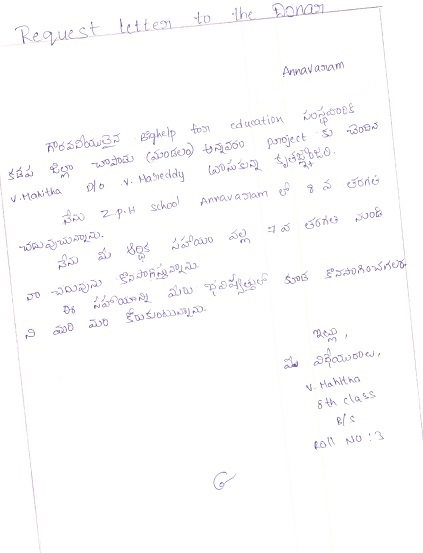 Request letter to the Donar
Annavaram
గౌరవనీయులైన help for education సంస్థవారికి
కడప జిల్లా చాపాడు (మండలం) అన్నవరం project కు చెందిన
V. Mahitha D/o V. Hareddy వ్రాసుకున్న
నేను Z.p.H school Annavaram లో 8 వ తరగతి
చదువుచున్నాను.
నేను మీ ఆర్థిక సహాయం వల్ల 7 వ తరగతి నుండి
నా చదువును కొనసాగిస్తున్నాను.
ఈ సహాయాన్ని మీరు భవిష్యత్తులో కూడ కొనసాగించగలరు
ని మరి మరి కోరుకుంటున్నాను.
ఇట్లు,
మీ విధేయురాలు,
V. Mahitha
8th class
B/S
Roll NO : 3